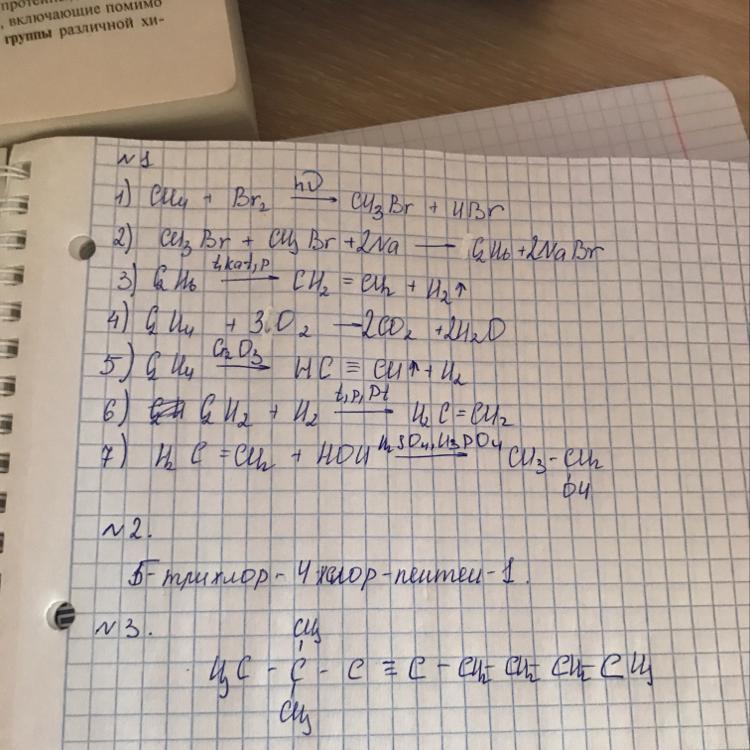 протеин
, включающие помимо
группы различной хи-
№1
1) CH4 + Br2 hν→ CH3Br + HBr
2) CH3Br + CH3Br + 2Na — C2H6 + 2NaBr
3) C2H6 t,kat,p→ CH2 = CH2 + H2↑
4) C2H4 + 3O2 — 2CO2 + 2H2O
5) C2H4 Cr2O3→ HC ≡ CH↑ + H2
6) C2H2 + H2 t,p,Pt→ H2C = CH2
7) H2C = CH2 + HOH H2SO4,H3PO4→ CH3 - CH2
OH
№2.
5-трихлор-4хлор-пентен-1.
№3.
CH3
H3C - C - C ≡ C - CH2 - CH2 - CH2 - CH3
CH3